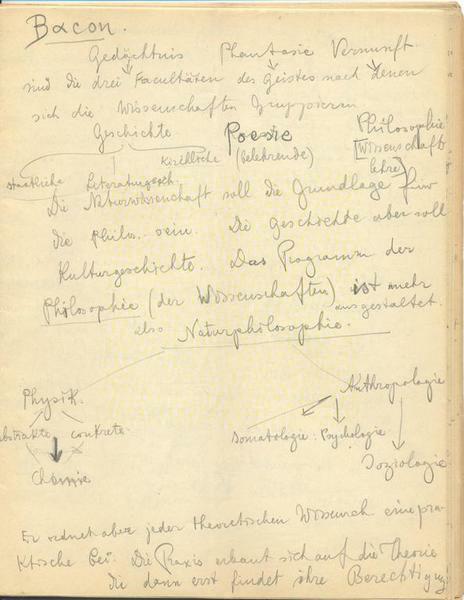 Bacon.
Gedächtnis Phantasie Vernunft.
sind die drei Facultäten des Geistes nach denen
sich die Wissenschaften Gruppieren
Geschichte Poesie Philosophie
kirchliche (belehrende) [Wissenschafts
lehre]
staatliche Literaturgesch.
Die Naturwissenschaft soll die Grundlage für
die Philos. sein. Die Geschichte aber soll
Kulturgeschichte. Das Programm der
Philosophie (der Wissenschaften) ist mehr
ausgestaltet.
also Naturphilosophie.
Physik. Anthropologie
abstrakte konkrete. Somatologie: Psychologie
Chemie Soziologie
Er ordnet aber jeder theoretischen Wissensch eine pra-
ktische bei. Die Praxis erbaut sich auf die Theorie
die dann erst findet ihre Berechtigung!